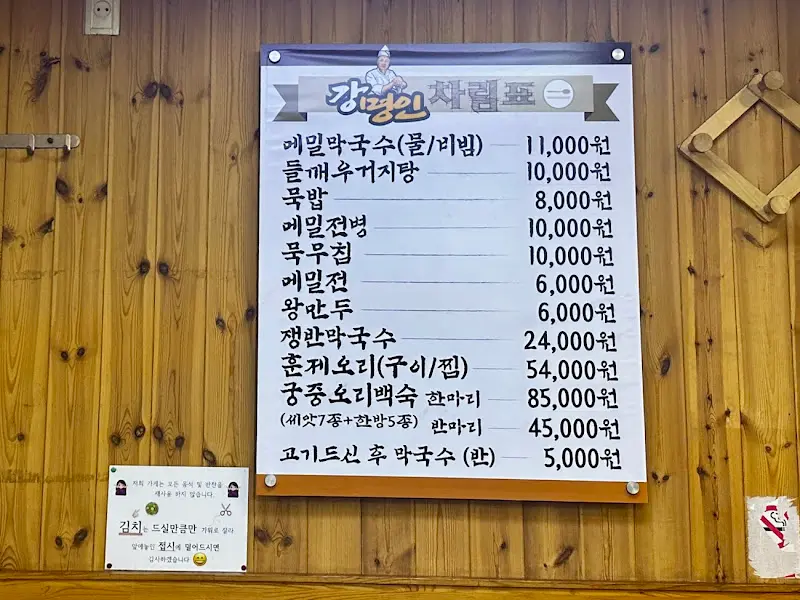 강명인 차림표
메밀막국수(물/비빔) 11,000원
들깨우거지탕 10,000원
묵밥 8,000원
메밀전병 10,000원
묵무침 10,000원
메밀전 6,000원
왕만두 6,000원
쟁반막국수 24,000원
훈제오리(구이/찜) 54,000원
궁중오리백숙 한마리 85,000원
(씨앗7종+한방5종) 반마리 45,000원
고기드신 후 막국수 (반) 5,000원
저희 가게는 모든 음식 및 반찬을
재사용 하지 않습니다.
김치는 드실만큼만 가위로 잘라
앞에놓인 접시에 덜어드시면
감사하겠습니다